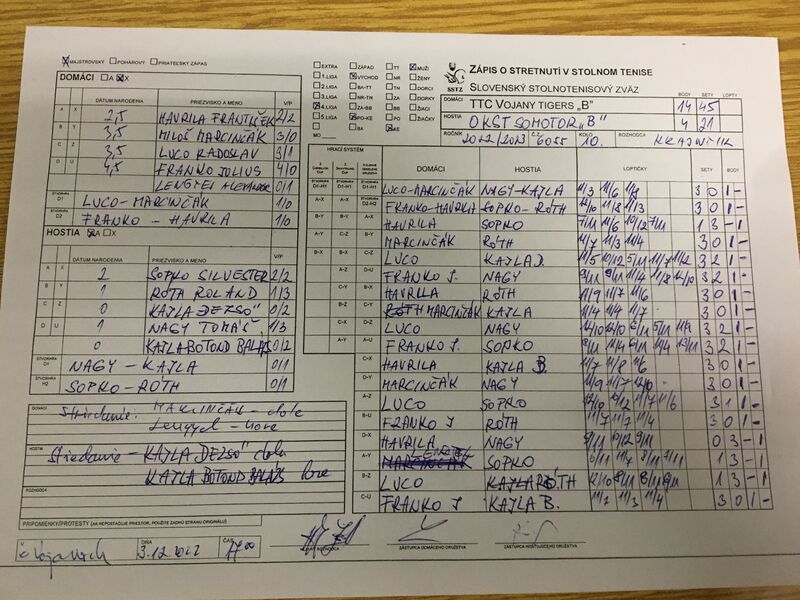 MAJSTROVSKÝ POHÁROVÝ PRIATEĽSKÝ ZÁPAS
DOMÁCI A X
DÁTUM NARODENIA PRIEZVISKO A MENO V/P
A X 2,5 HAVRILA FRANTIŠEK 2/2
B Y 3,5 MILOŠ MARCINČÁK 3/0
C Z 3,5 LUCO RADOSLAV 3/1
D U 4,5 FRANKO JÚLIUS 4/0
LENGYEL ALEXANDER 0/1
ŠTVORHRA D1 LUCO-MARCINČÁK 1/0
ŠTVORHRA D2 FRANKO-HAVRILA 1/0
HOSTIA A X
DÁTUM NARODENIA PRIEZVISKO A MENO V/P
A X 2 SOPKO SILVESTER 2/2
B Y 1 RÓTH ROLAND 1/3
C Z 0 KAJLA DEZSŐ 0/2
D U 1 NAGY TOMÁŠ 1/3
0 KAJLA BOTOND BALÁZS 0/2
ŠTVORHRA H1 NAGY - KAJLA 0/1
ŠTVORHRA H2 SOPKO-RÓTH 0/1
DOMÁCI
Striedanie: MARCINČÁK - dole
Lengyel - hore
HOSTIA
Striedanie - KAJLA DEZSŐ dole
KAJLA BOTOND BALÁZS hore
ROZHODCA
PRIPOMIENKY/PROTESTY (AK NEPOSTAČUJE PRIESTOR, POUŽITE ZADNÚ STRANU ORIGINÁLU)
DŇA 3.12.2022 ČAS 17:00
HLAVNÝ ROZHODCA ZÁSTUPCA DOMÁCEHO DRUŽSTVA ZÁSTUPCA HOSŤUJÚCEHO DRUŽSTVA
EXTRA ZÁPAD TT MUŽI
1.LIGA VÝCHOD NR ŽENY
2.LIGA BA-TT TN DORCI
3.LIGA NR-TN ZA DORKY
4.LIGA ZA-BB BB ŽIACI
5.LIGA PO-KE PO ŽIAČKY
6.LIGA BA KE
MO
SSTZ
ZÁPIS O STRETNUTÍ V STOLNOM TENISE
SLOVENSKÝ STOLNOTENISOVÝ ZVÄZ
BODY SETY LOPTY
DOMÁCI TTC VOJANY TIGERS „B" 14 45
HOSTIA OKST SOMOTOR „B" 4 21
ROČNÍK 2022/2023 Č.Z. 6055 KOLO 10. ROZHODCA KRAJNÍK
HRACÍ SYSTÉM
DOMÁCI HOSTIA LOPTIČKY SETY BODY
LUCO-MARCINČÁK NAGY-KAJLA 11/3 11/6 11/8 3 0 1 -
FRANKO-HAVRILA SOPKO-RÓTH 12/10 11/8 11/3 3 0 1 -
HAVRILA SOPKO 7/11 11/6 10/12 7/11 1 3 - 1
MARCINČÁK RÓTH 11/7 11/3 11/4 3 0 1 -
LUCO KAJLA D. 3 2 1 -
FRANKO J. NAGY 3 2 1 -
HAVRILA RÓTH 11/9 11/7 11/6 3 0 1 -
MARCINČÁK KAJLA 11/4 11/4 11/7 3 0 1 -
LUCO NAGY 3 2 1 -
FRANKO J. SOPKO 3 2 1 -
HAVRILA KAJLA B. 11/7 11/8 11/6 3 0 1 -
MARCINČÁK NAGY 11/9 11/7 12/10 3 0 1 -
LUCO SOPKO 12/10 10/12 11/7 11/6 3 1 1 -
FRANKO J RÓTH 11/7 11/7 11/4 3 0 1 -
HAVRILA NAGY 9/11 10/12 9/11 0 3 - 1
LENGYEL SOPKO 6/11 11/7 8/11 7/11 1 3 - 1
LUCO RÓTH 12/10 8/11 8/11 9/11 1 3 - 1
FRANKO J KAJLA B. 11/7 11/3 11/4 3 0 1 -